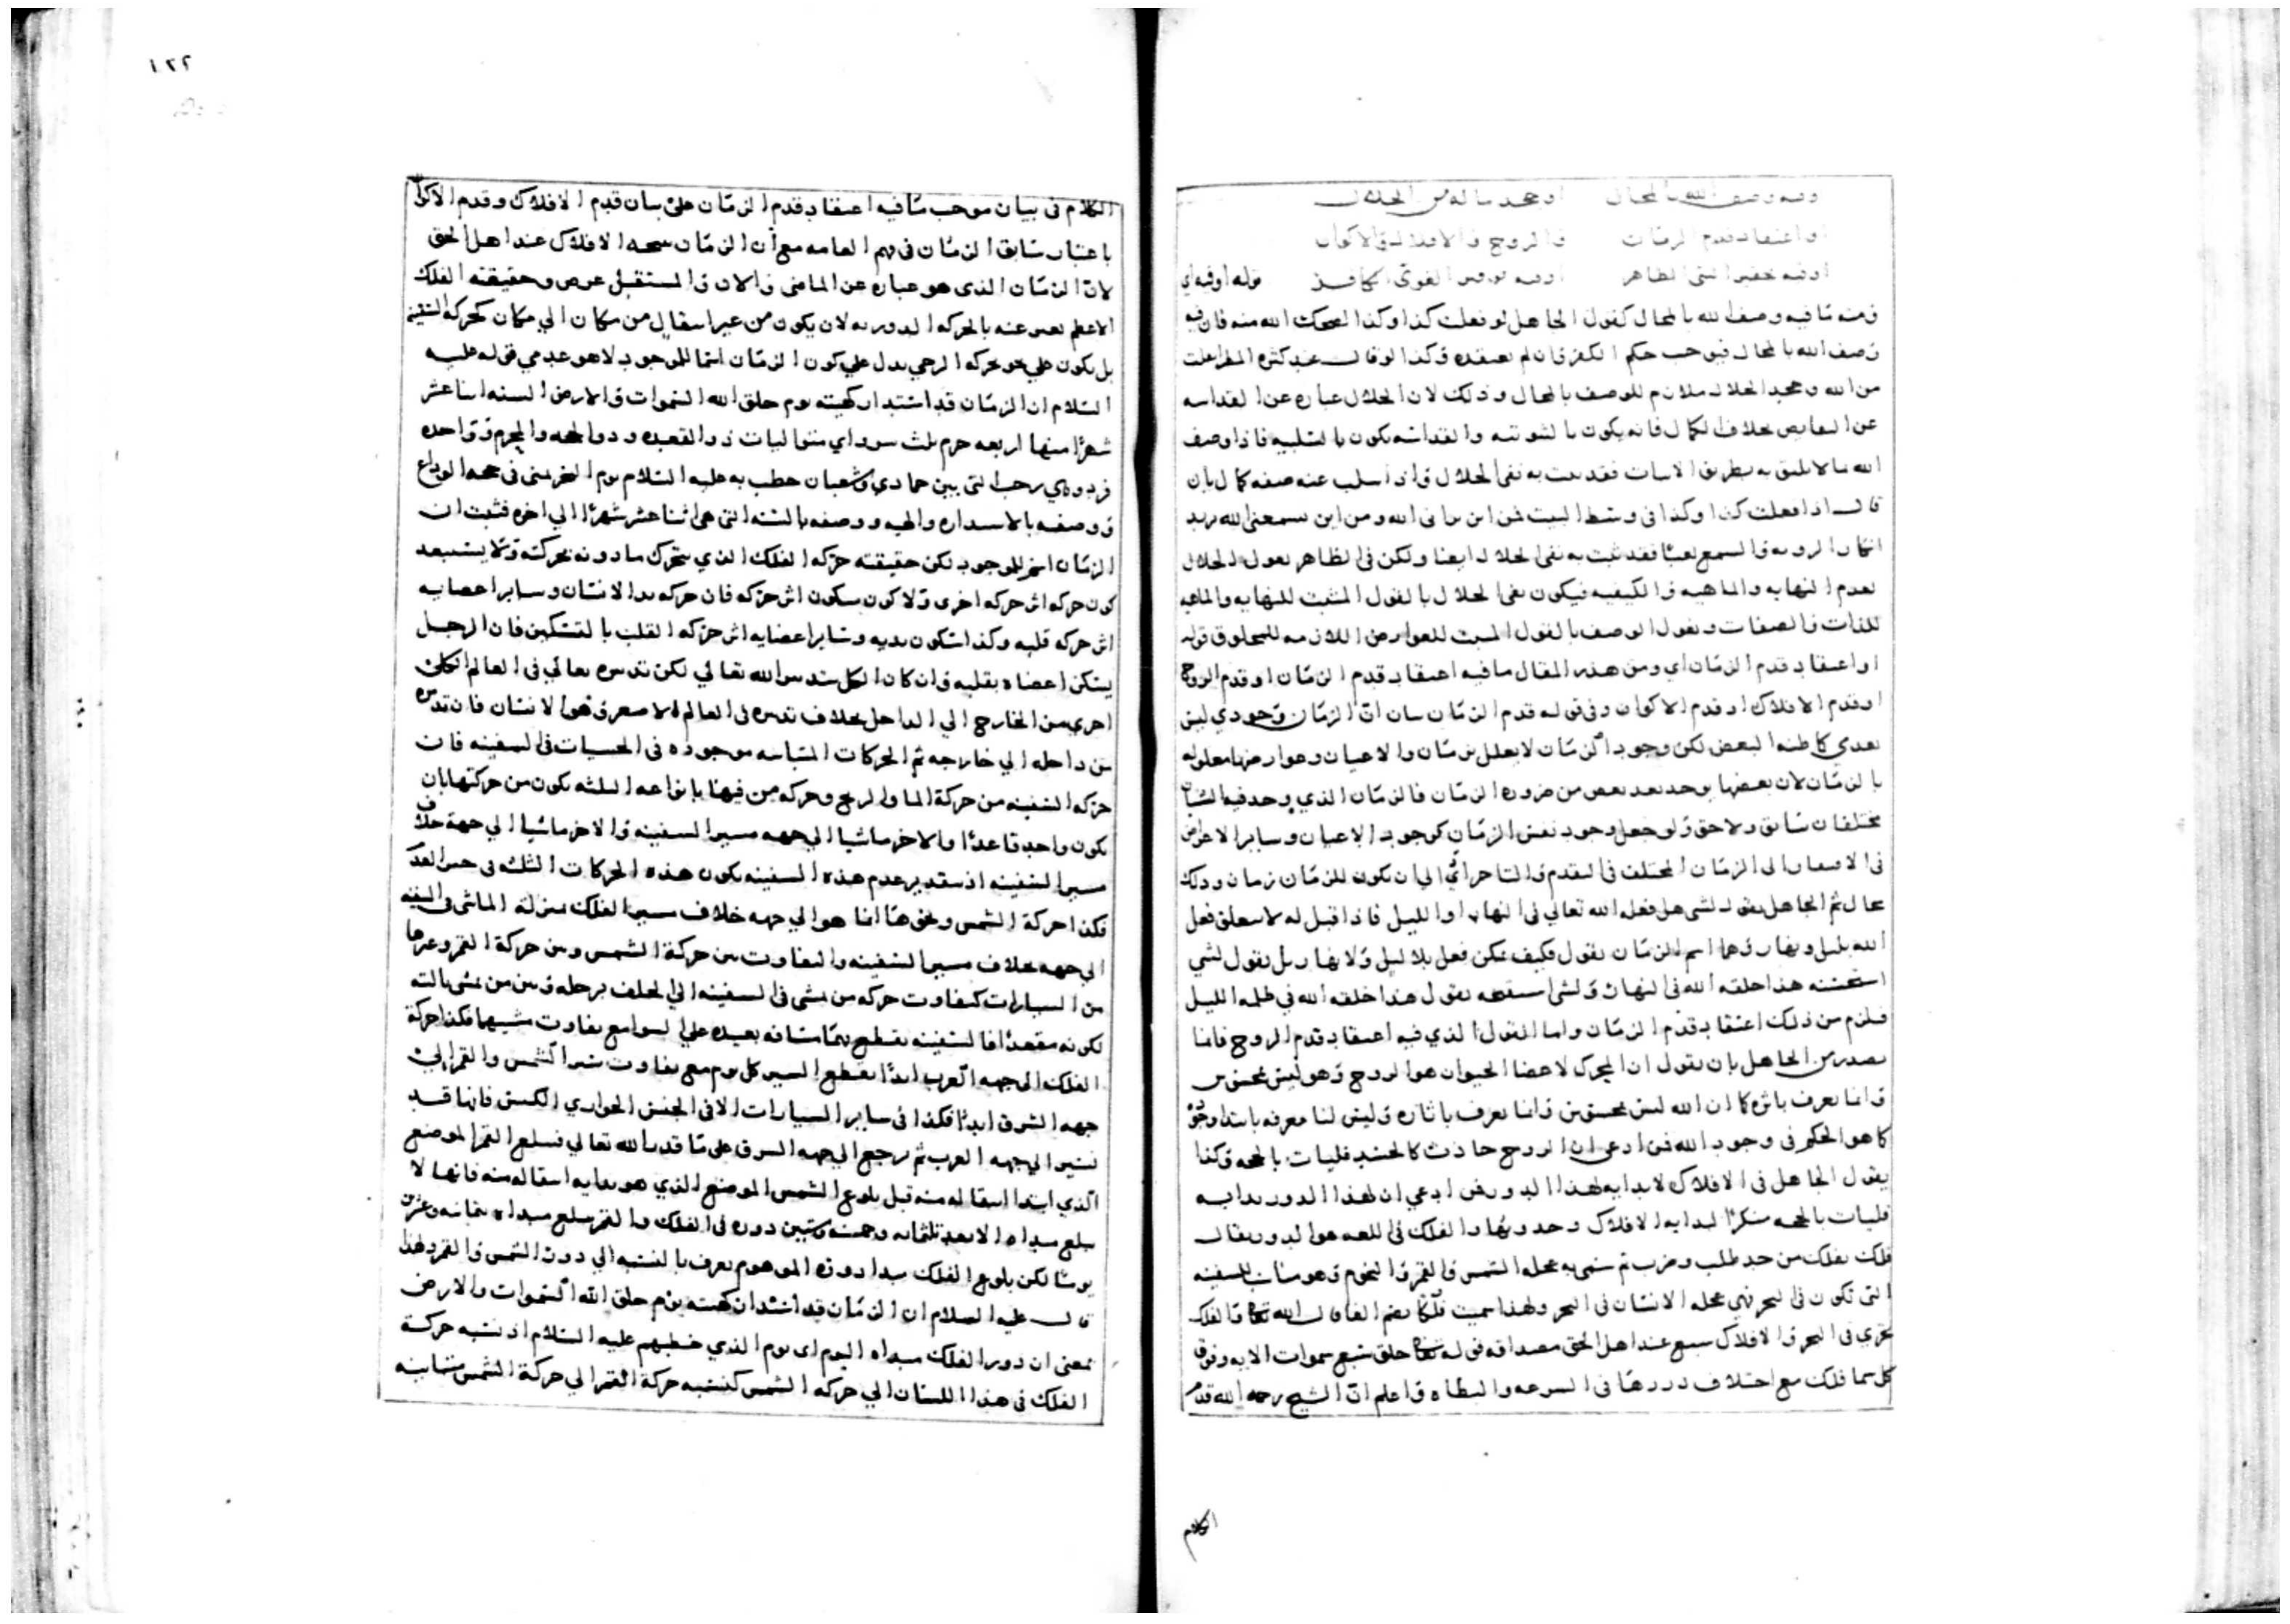 وفيه وصف الله بالمحال او جحد ماله من الجلال
او اعتقاد قدم الزمان والروح والافلاك والاكوان
او فيه تحقير النبي الطاهر او فيه الغوي الكافر قوله او فيه اي
ومنه ما فيه وصف الله بالمحال كقول الجاهل لو فعلت كذا وكذا الله منه فان فيه
وصف الله بالمحال فيوجب حكم الكفر وان لم يعتقده وكذا لو قال عند كثرة المطر
من الله وجحد الجلال ملازم للوصف بالمحال وذلك لان الجلال عباره عن القداسه
عن النقايص بخلاف الكمال فانه يكون بالثبوتيه والقداسه تكون بالسلبيه فاذا وصف
الله بما لا يليق به بطريق الاثبات فقد ثبت به نفي الجلال واذا سلب عنه صفه كمال بان
قال اذا فعلت كذا وكذا في وسط البيت من اين يراني الله ومن اين يسمعني الله يريد
انكار الرويه والسمع فقد ثبت به نفي الجلال ايضا ولكن في الظاهر نقول الجلال
لعدم النهايه والماهيه والكيفيه فيكون نفي الجلال بالقول المثبت للنهايه والماهيه
للذات والصفات ونقول الوصف بالقول المثبت للعوارض اللازمه للمخلوق قوله
او اعتقاد قدم الزمان اي ومن هذا المقال ما فيه اعتقاد قدم الزمان او قدم الروح
او قدم الافلاك او قدم الاكوان وفي قوله قدم الزمان بيان ان الزمان وجودي ليس
بعدمي كما ظنه البعض لكن وجود الزمان لا يعلل بزمان والاعيان وعوارضها معلوله
بالزمان لان بعضها يوجد بعد بعض من ضروره الزمان فالزمان الذي يوجد فيه الشيان
مختلفان سابق ولاحق ولو جعل وجود نفس الزمان كوجود الاعيان وساير الاعراض
في الافتقار الى الزمان المختلف في التقدم والتاخر الي ان يكون للزمان زمان وذلك
محال ثم الجاهل يقول لشي هل فعله الله تعالي في النهار او الليل فاذا قيل له لا يتعلق فعل
الله بليل ونهار وهما اسم الزمان يقول فكيف يمكن فعل بلا ليل ولا نهار بل يقول لشي
استحسنه هذا خلقه الله في النهار ولشي استقبحه يقول هذا خلقه الله في ظلمه الليل
فلزم من ذلك اعتقاد قدم الزمان واما القول الذي فيه اعتقاد قدم الروح فانما
يصدر من الجاهل بان يقول ان المحرك لاعضا الحيوان هو الروح وهو ليس بمحسوس
وانما يعرف باثره كما ان الله ليس بمحسوس وانما يعرف باثاره وليس لنا معرفه بابتدا وجوده
كما هو الحكم في وجود الله فمن ادعي ان الروح حادث كالجسد فليات بالحجه وكذا
يقول الجاهل في الافلاك لا بدايه لهذا الدور فمن ادعي ان لهذا الدور بدايه
فليات بالحجه منكرا لبدايه الافلاك وحدوثها والفلك في اللغه هو الدور يقال
فلك يفلك من حد طلب وضرب ثم سمي به محله الشمس والقمر والنجوم وهو مناسب للسفينه
التي تكون في البحر فهي محله الانسان في البحر ولهذا سميت فلكا بضم الفا قال الله تعالى والفلك
تجري في البحر والافلاك سبع عند اهل الحق مصداقه قوله تعالى خلق سبع سموات الايه وفوق
كل سما فلك مع اختلاف دورها في السرعه والبطاه واعلم ان الشيخ رحمه الله قدم
الكلام
١٢٢
الكلام في بيان موجب ما فيه اعتقاد قدم الزمان علي بيان قدم الافلاك وقدم الاكوان
باعتبار سابق الزمان في فهم العامه مع ان الزمان الافلاك عند اهل الحق
لان الزمان الذي هو عباره عن الماضي والان والمستقبل عرض وحقيقته الفلك
الاعظم يعبر عنه بالحركه الدوريه لان يكون من غير انتقال من مكان الي مكان كحركه السفينه
بل يكون علي نحو حركه الرحي يدل علي كون الزمان اسما للموجود لا هو عدمي قوله عليه
السلام ان الزمان قد استدار كهيئته يوم خلق الله السموات والارض السنه اثنا عشر
شهرا منها اربعه حرم ثلث سرد اي متواليات ذو القعده وذو الحجه والمحرم وواحده
فرد وهي رجب التي بين جمادي وشعبان خطب به عليه السلام يوم النحر بمنى في حجه الوداع
ووصفه بالاستداره والهيه ووصفه بالسنه التي هي اثنا عشر شهرا الي اخره فثبت ان
الزمان اسم للموجود لكن حقيقته حركه الفلك الذي يتحرك ما دونه بحركته ولا يستبعد
كون حركه اثر حركه اخرى ولا كون سكون اثر حركه فان حركه يد الانسان وساير اعضايه
اثر حركه قلبه وكذا سكون يديه وساير اعضايه اثر حركه القلب بالتسكين فان الرجل
يسكن اعضاه بقلبه وان كان الكل بتدبير الله تعالي لكن تدبيره تعالي في العالم الكلي
اجري من الخارج الي الداخل بخلاف تدبيره في العالم الاصغر وهو الانسان فان تدبيره
من داخله الي خارجه ثم الحركات المتباينه موجوده في الحسيات في السفينه فان
حركه السفينه من حركة الما والريح وحركه من فيها بانواعه الثلثه يكون من حركتها بان
يكون واحد قاعدا والاخر ماشيا الي جهه مسير السفينه والاخر ماشيا الي جهة خلاف
مسير السفينه اذ بتقدير عدم هذه السفينه يكون هذه الحركات الثلث في حيز العدم
فكذا حركة الشمس ونحوها انما هو الي جهه خلاف مسير الفلك بمنزلة الماشي في السفينه
الي جهه بخلاف مسير السفينه والتفاوت بين حركة الشمس وبين حركة القمر وغيرها
من السيارات كتفاوت حركه من يمشي في السفينه الي الخلف برجله وبين من يمشي بالته
لكونه مقعدا فالسفينه تقطع بهما مسافه بعيده علي السوا مع تفاوت مشيهما فكذا حركة
الفلك الي جهه الغرب ابدا يقطع السير كل يوم مع تفاوت سير الشمس والقمر الي
جهه الشرق ابدا فكذا في ساير السيارات الا في الخنس الجواري الكنس فانها قد
تسير الي جهه الغرب ثم يرجع الي جهه الشرق علي ما قدر الله تعالي فيبلغ القمر الموضع
الذي ابتدا انتقاله منه قبل بلوغ الشمس الموضع الذي هو بدايه انتقاله منه فانها لا
يبلغ مبداه الا بعد ثلثمايه وخمسه وستين دوره في الفلك والقمر يبلغ مبداه بثمانيه وعشرين
يوما لكن بلوغ الفلك مبدا دوره الموهوم يعرف بالنسبه الي دور الشمس والقمر ولهذا
قال عليه السلام ان الزمان قد استدار كهيئته يوم خلق الله السموات والارض
بمعنى ان دور الفلك مبداه اليوم اى يوم الذي خطبهم عليه السلام اذ نسبه حركة
الفلك في هذا اللسان الي حركه الشمس كنسبه حركة القمر الي حركة الشمس متباينه